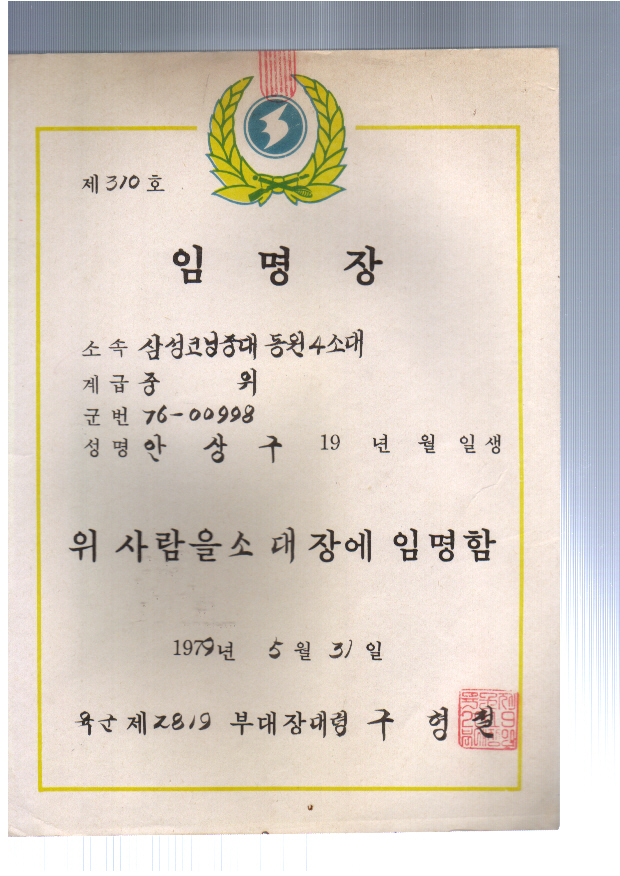 제 310 호
임 명 장
소 속 삼성코닝중대 동원4소대
계 급 중 위
군 번 76-00998
성 명 안 상 구 19 년 월 일 생
위 사람을 소 대 장에 임명함
1979년 5 월 31 일
육군 제2819 부대장대령 구 형 철